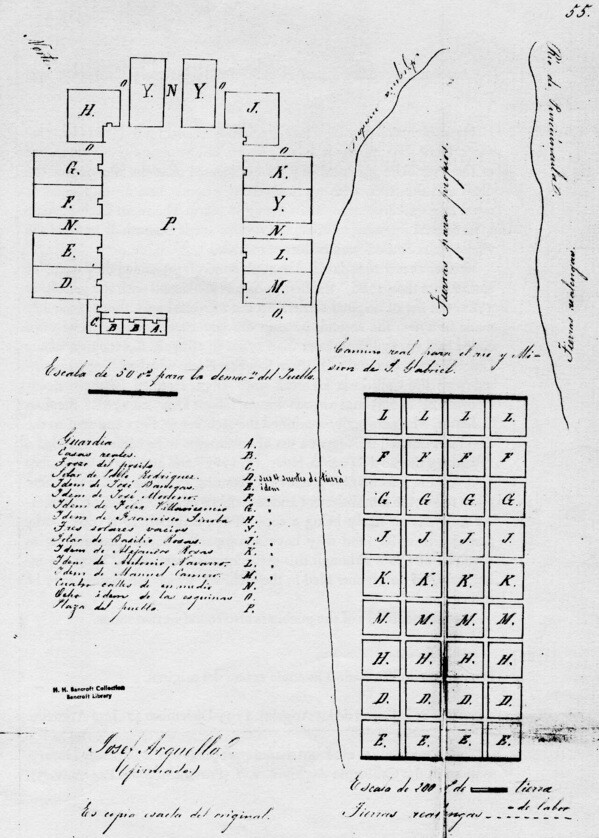 55.
North.
Y. N Y.
H. O O J.
O O
G. K
F. P. Y.
N. N.
E. L
D. M
C. B B A. O.
Tierras para propios.
Tierras realengas
Escala de 50 vs. para la demarn. del Pueblo.
Camino real para el rio y Mi-
sion de S. Gabriel.
Guardia A.
Casas reales. B.
C.
Solar de Pablo Rodriguez. D. sus 4 suertes de tierra
Idem de José Banegas. E. idem
Idem de José Moreno. F. "
Idem de Felix Villavicencio G. "
Idem de Francisco H. "
Tres solares vacios Y.
Solar de Basilio Rosas. J. "
Idem de Alejandro Rosas K. "
Idem de Antonio Navarro. L. "
Idem de Manuel Camero. M. "
Cuatro calles de en medio N.
Ocho idem de las esquinas O.
Plaza del pueblo P.
L L L L.
F F F F
G G G G
J J J J
K K K K.
M. M. M. M.
H H. H. H.
D. D. D. D.
E. E. E. E.
H. H. Bancroft Collection
Bancroft Library
Josef Arguello.
(firmado)
Es copia esacta del original.
200 de tierra
de labor
Tierras realengas